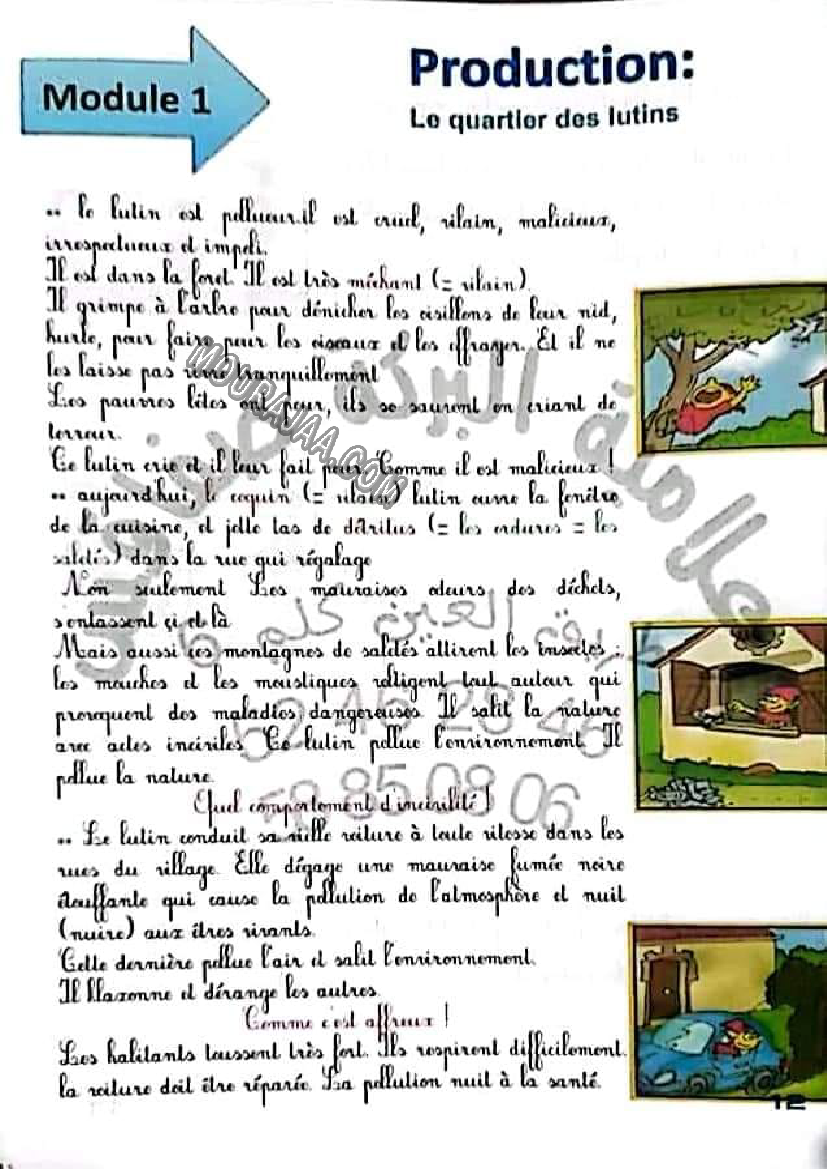 Module 1
Production:
Le quartier des lutins
•• Le lutin est pollueur.il est cruel, vilain, malicieux,
irrespectueux et impoli.
Il est dans la foret. Il est très méchant (= vilain).
Il grimpe à l'arbre pour dénicher les oisillons de leur nid,
hurle, pour faire peur les oiseaux et les effrayer. Et il ne
les laisse pas vivre tranquillement
Les pauvres bêtes ont peur, ils se sauvent en criant de
terreur.
Ce lutin crie et il leur fait peur. Comme il est malicieux !
•• aujourd'hui, le coquin (= vilain) lutin ouvre la fenêtre
de la cuisine, et jette tas de détritus (= les ordures = les
saletés) dans la rue qui
Non seulement Les mauvaises odeurs des déchets,
s'entassent çi et là
Mais aussi ces montagnes de saletés attirent les insectes :
les mouches et les moustiques voltigent tout autour qui
provoquent des maladies dangereuses. Il salit la nature
avec actes inciviles. Ce lutin pollue l'environnement. Il
pollue la nature.
Quel comportement d'incivilité !
•• Le lutin conduit sa vieille voiture à toute vitesse dans les
rues du village. Elle dégage une mauvaise fumée noire
étouffante qui cause la pollution de l'atmosphère et nuit
(nuire) aux êtres vivants.
Cette dernière pollue l'air et salit l'environnement.
Il klaxonne et dérange les autres.
Comme c'est affreux !
Les habitants toussent très fort. Ils respirent difficilement.
la voiture doit être réparée. La pollution nuit à la santé.
MOURAJAA.COM
مكتبة البركة صفاقس
طريق العين كلم 6
52 46 28 46
58 85 08 06
12